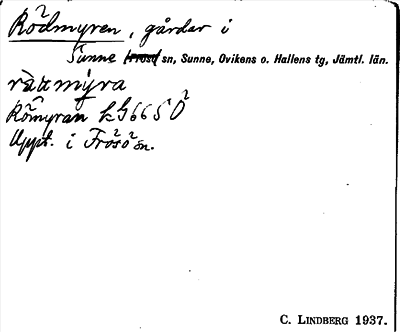 Rödmyren, gårdar i
Sunne Frösö sn, Sunne, Ovikens o. Hallens tg, Jämtl. län.
Römyran kG665 Ö
Uppt. i Frösö sn.
C. LINDBERG 1937.